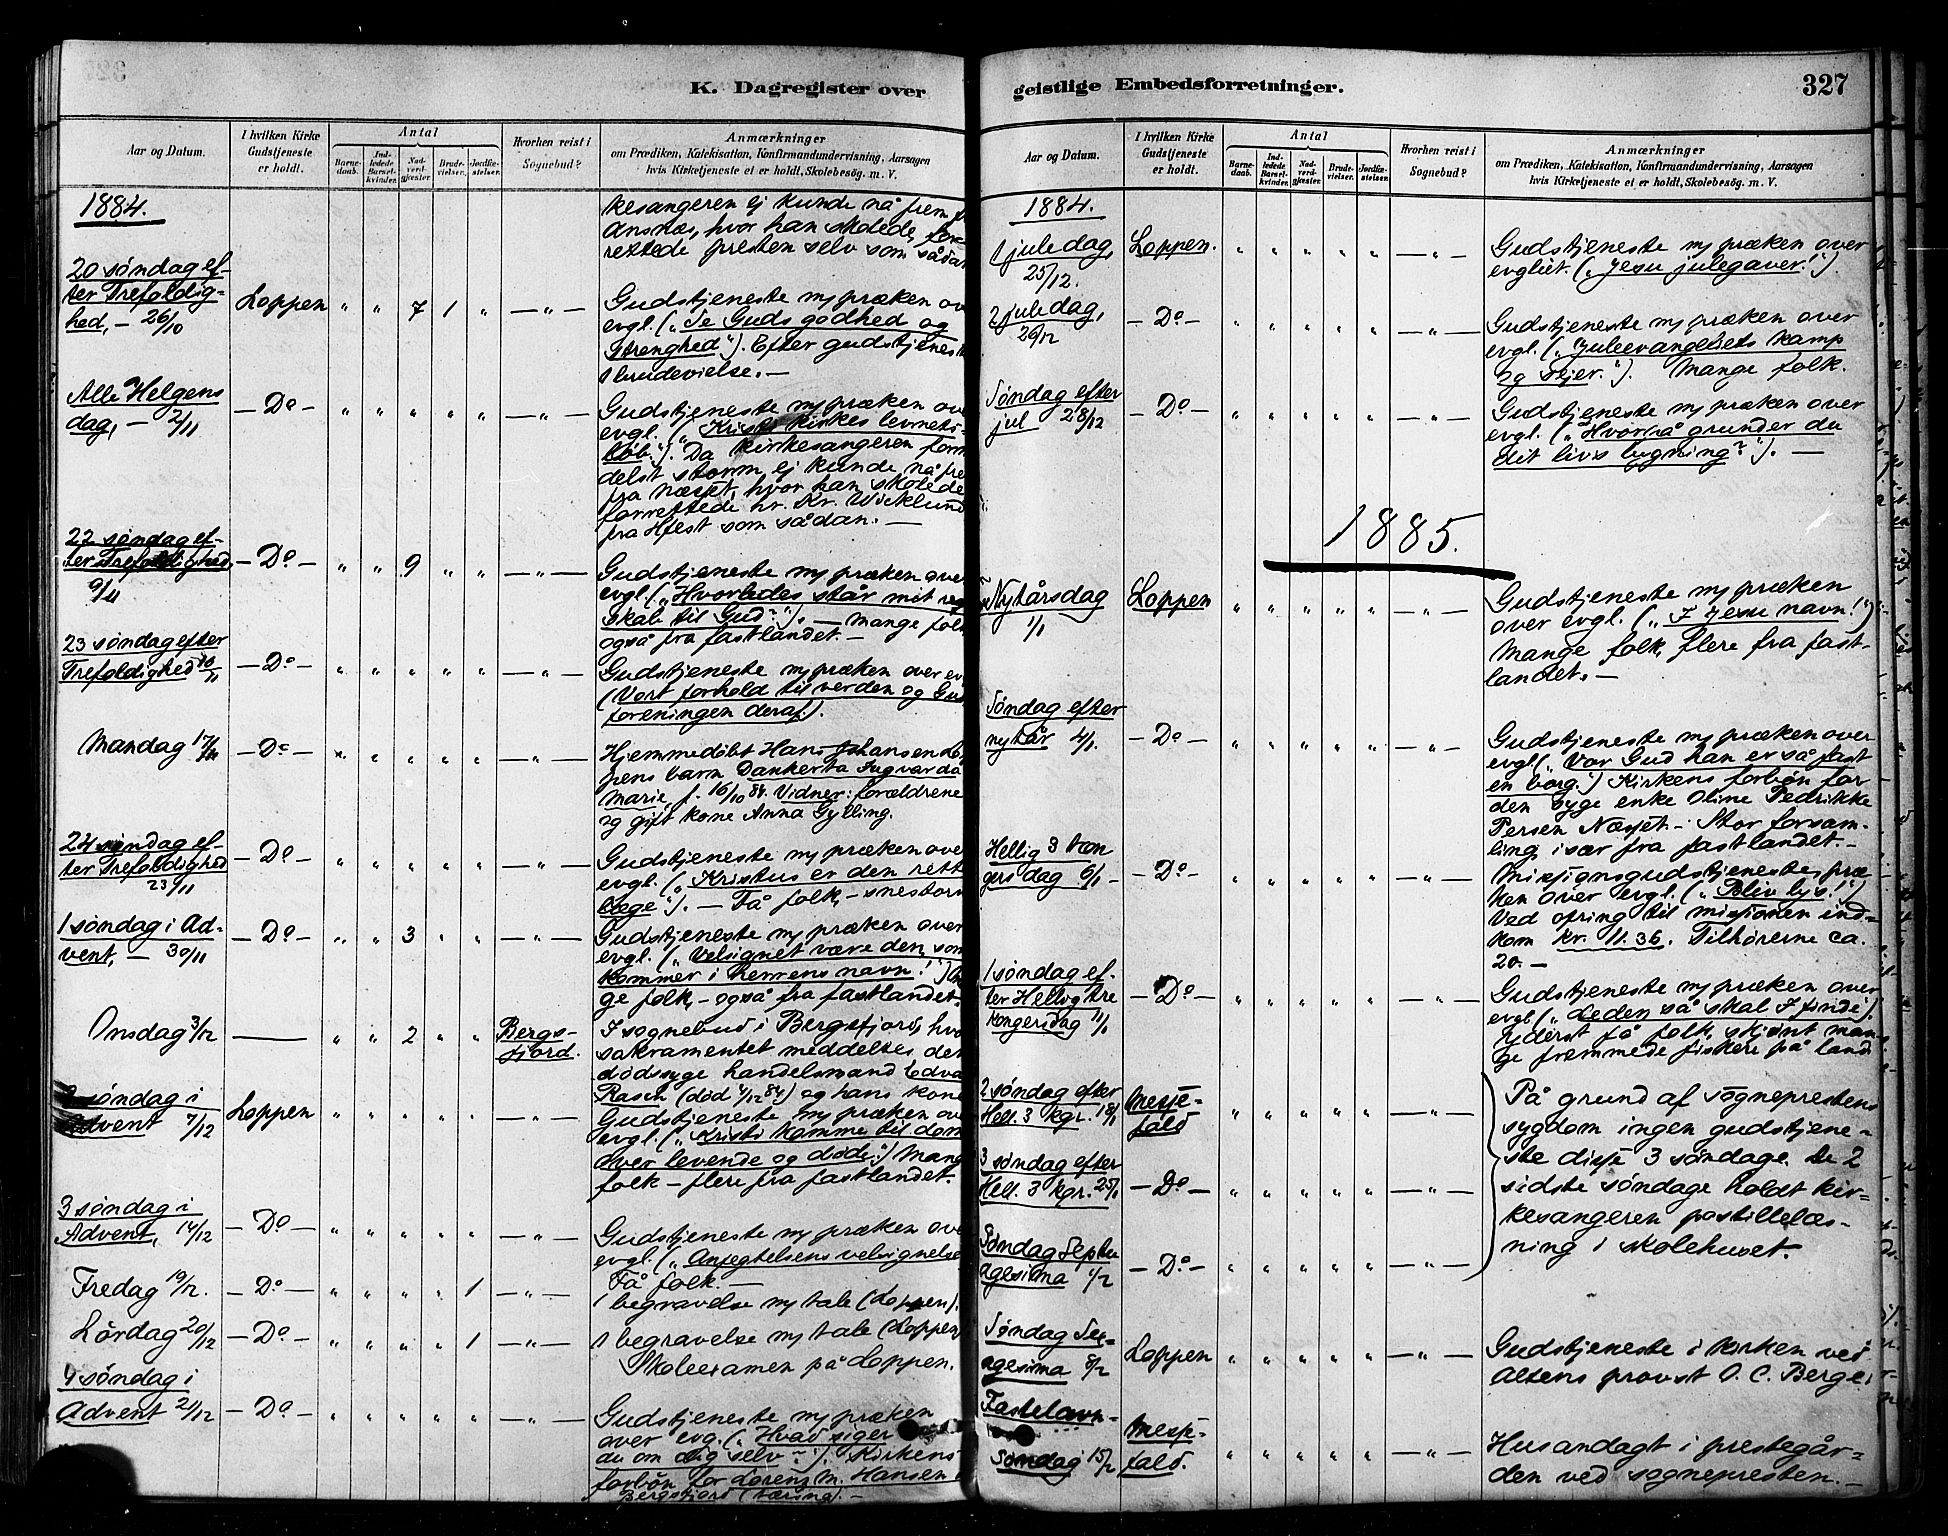 K. Dagregister over
Aar og Datum.
I hvilken Kirke
Gudstjeneste
er holdt.
Antal
Barne-
daab.
Ind-
ledede
Barsel-
kvinder.
Nad-
verd-
gjester
Brude-
vielser.
Jordfæ-
stelser.
Hvorhen reist i
Sognebud?
Anmærkninger
om Prædiken, Katekisation, Konfirmandundervisning, Aarsagen
hvis Kirketjeneste ei er holdt, Skolebesøg. m. V.
1884.
kesangeren ej kunde nå frem
Ansnæs, hvor han skolede, for-
rettede presten selv som sådan
20 søndag ef-
ter Trefoldig-
hed, - 26/10
Loppen " " 7 1 " - " -
Gudstjeneste m/ præken
evgl. („Se Guds godhed og
strenghed"). Efter gudstjeneste
1 brudevielse. -
Alle Helgens
dag, - 2/11
- Do - " " " " " - " -
Gudstjeneste m/ præken
evgl. „Kristi kirkes levnets-
løb"). Da kirkesangeren form
delst storm ej kunde nå
fra Næsset, hvor han skolede
forrettede hr. Kr. Wicklund
fra Hfest som sådan. -
22 søndag ef-
ter Trefoldighed,
9/11
- Do - " " 9 " " - " -
Gudstjeneste m/ præken over
evgl. („Hvorledes står mit
skab til Gud?"). - mange folk
også fra fastlandet. -
23 søndag efter
Trefoldighed
- Do - " " " " " - " -
Gudstjeneste m/ præken over
(Vort forhold til verden og
foreningen deraf).
Mandag 17/11
- Do - " " " " " - " -
Hjemmedøbt Hans Johansen
pens barn Dankerta Ingvarda
Marie, f. 16/10 84. Vidner: forældrene
og gift kone Anna Gylling.
24 søndag ef-
ter Trefoldighed
23/11
- Do - " " " " " - " -
Gudstjeneste m/ præken over
evgl. („Kristus er den rette
læge"). - Få folk, - snestorm
1 søndag i Ad-
vent, - 30/11
- Do - " " 3 " " - " -
Gudstjeneste m/ præken over
evgl. („Velsignet være den, som
kommer i herrens navn!")
ge folk, - også fra fastlandet.
Onsdag 3/12
— " " 2 " " Bergs-
fjord.
I sognebud i Bergsfjord, hvor
sakramentet meddeltes den
dødssyge handelsmand
Rasch (død 4/12 84) og hans kone
søndag i
Advent 7/12
Loppen " " " " " - " -
Gudstjeneste m/ præken
evgl. („Kristi komme til dom
over levende og døde.")
folk - flere fra fastlandet.
3 søndag i
Advent, 14/12
- Do - " " " " " - " -
Gudstjeneste m/ præken
evgl. („Anfegtelsens velsignelse
Få folk. -
Fredag 19/12.
- Do - " " " " 1 - " -
1 begravelse m/ tale (Loppen).
Lørdag 20/12
- Do - " " " " 1 - " -
1 begravelse m/ tale (Loppen)
Skoleexamen på Loppen.
4 søndag i
Advent 21/12
- Do - " " " " " - " -
Gudstjeneste m/ præken
over evg. („Hvad siger
du om dig selv?"). Kirkens
forbøn for Lorenz M. Hansen
Bergsfjord (tæring). -
geistlige Embedsforretninger.
327
Aar og Datum.
I hvilken Kirke
Gudstjeneste
er holdt.
Antal
Barne-
daab.
Ind-
ledede
Barsel-
kvinder.
Nad-
verd-
gjester
Brude-
vielser.
Jordfæ-
stelser.
Hvorhen reist i
Sognebud?
Anmærkninger
om Prædiken, Katekisation, Konfirmandundervisning, Aarsagen
hvis Kirketjeneste ei er holdt, Skolebesøg. m. V.
1884.
1 juledag,
25/12.
Loppen. " " " " " - " -
Gudstjeneste m/ præken over
evgliet. („Jesu julegaver!").
2 juledag,
26/12
- Do - " " " " " - " -
Gudstjeneste m/ præken over
evgl. („Juleevangeliets kamp
og sejer."). Mange folk.
Søndag efter
jul 28/12
- Do - " " " " " - " -
Gudstjeneste m/ præken over
evgl. („Hvorpå grunder du
dit livs bygning?"). -
1885.
Nytårsdag
1/1
Loppen " " " " " - " -
Gudstjeneste m/ præken
over evgl. („I Jesu navn!")
Mange folk, flere fra fast-
landet. -
Søndag efter
nytår 4/1.
- Do - " " " " " - " -
Gudstjeneste m/ præken over
evgl („Vor Gud han er så fast
en borg.") Kirkens forbøn for
den syge enke Oline Pedrikke
Persen Næsset. - Stor forsam-
ling, især fra fastlandet. -
Hellig 3 kon
gers dag 6/1 -
- Do - " " " " " - " -
Missionsgudstjeneste, præ-
ken over evgl. („Bliv lys!")
Ved ofring til missionen ind-
kom kr. 11.36. Tilhørerne ca.
20. -
1 søndag ef-
ter Hellig tre
kongersdag 11/1
- Do - " " " " " - " -
Gudstjeneste m/ præken over
evgl („Leden så skal I finde).
Yderst få folk, skjønt man-
ge fremmede fiskere på land
2 søndag efter
Hell. 3 kgr. 18/1
Messe-
fald " " " " " - " -
3 søndag efter
Hell. 3 kgr. 25/1
- Do - " " " " " - " -
Søndag Septu-
agesima 1/2
- Do - " " " " " - " -
På grund af sognepresten​s
sygdom ingen gudstjene-
ste disse 3 søndage. De 2
sidste søndage holdt kir-
kesangeren postillelæs-
ning i skolehuset.
Søndag Sex-
agesima 8/2
Loppen " " " " " - " -
Gudstjeneste i kirken ved
Altens provst O. C. Berge.
Fastelavn-
Søndag 15/2
Messe-
fald. " " " " " - " -
Husandagt i prestegår-
den ved sognepresten. -